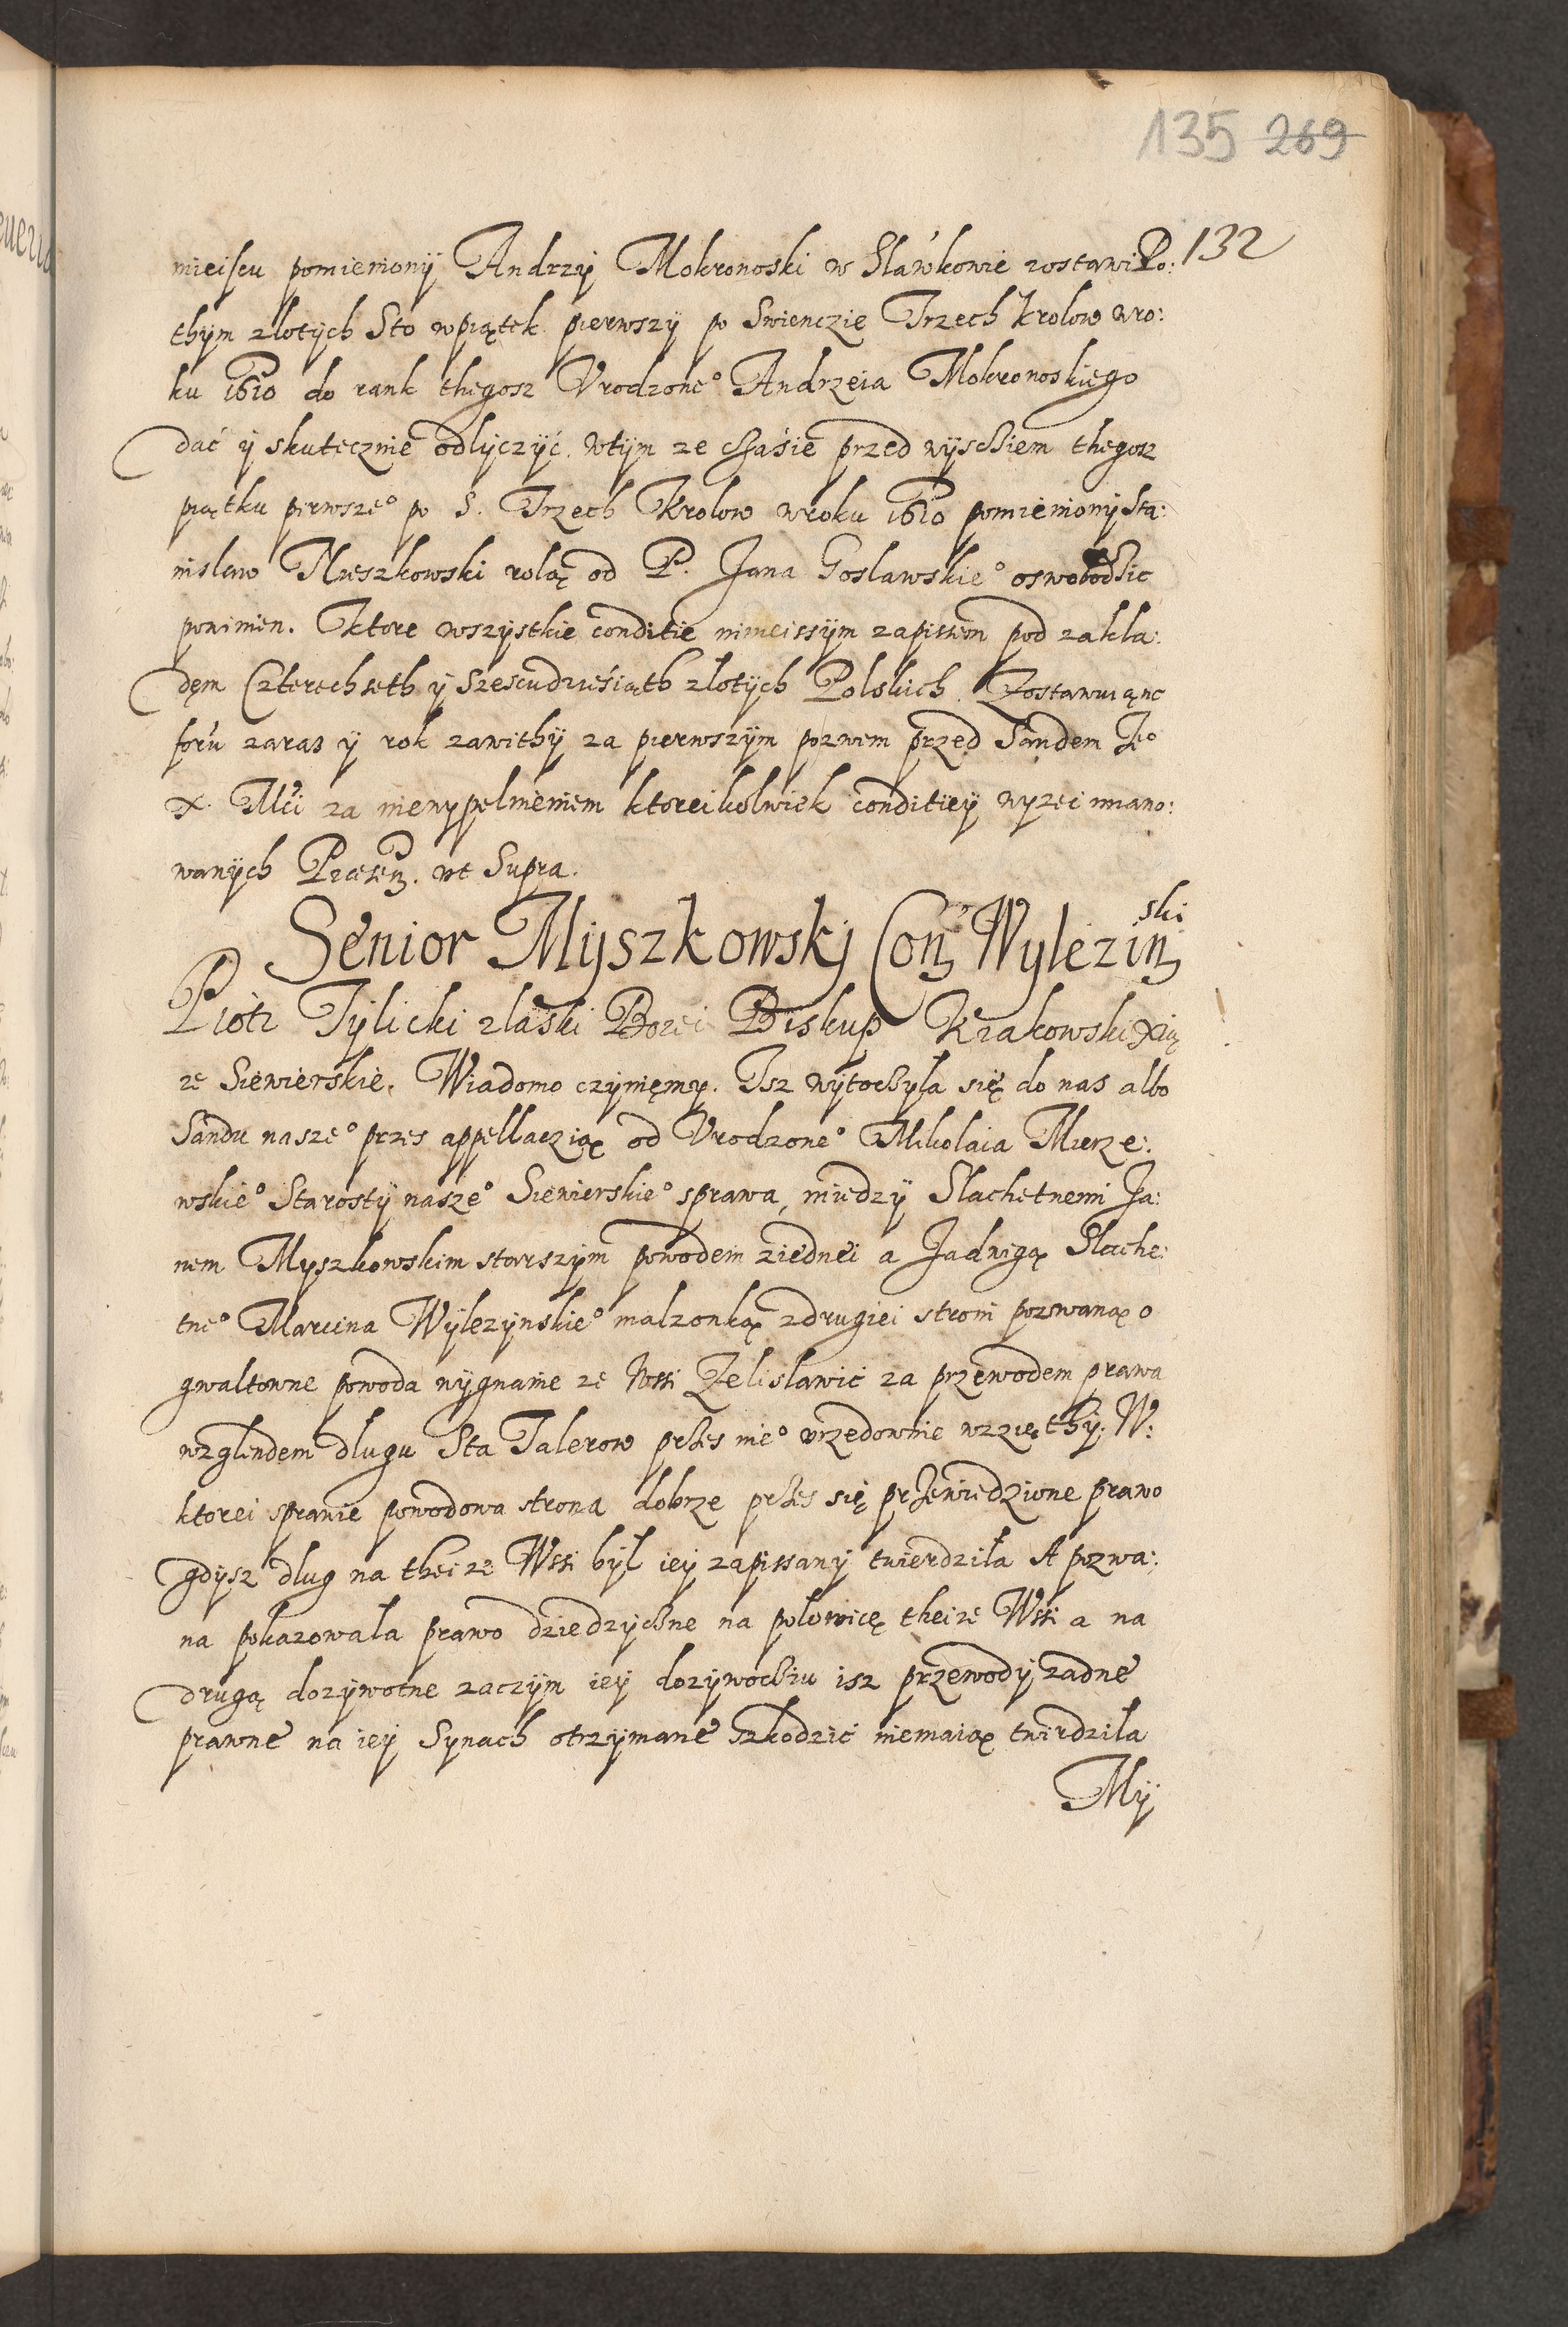 135 269
132
mieiscu pomieniony Andrzy Mokronoski w Sławkowie zostawi. Po:
thym złotych Sto wpiątek pierwszy po Swienczie Trzech Krolow wro:
ku 1610 do rank thegosz Vrodzone° Andrzeia Mokronoskiego
dać ÿ skutecznie odlyczyć. wtym ze cßasie przed wyscßiem thegosz
piątku pierwsze° po S. Trzech Krolow wroku 1610 pomieniony Sta:
nislaw Mieszkowski rolą od P. Jana Goslawskie° oswobodßic
powinien. Ktore wszystkie conditie ninieissym zapissem pod zakla:
dęm Czterechseth ÿ Szescudzieśiąth złotych Polskich. Zostawuiąnc
foru zaras ÿ rok zawithy za pierwszym pozwem przed Sandem Je°
X. Mći za niewypelnieniem ktoreikolwiek conditiey wyzei miano:
wanych Præsen. ut Supra.
Senior Myszkowskj Con Wylezinski
Piotr Tylicki zlaski Bozei Biskup Krakowski Xią
ze Siewierskie. Wiadomo czyniemy. Isz wytocßyla się do nas albo
Sandu nasze° przes appellaczią od Vrodzone° Mikolaia Mierze:
wskie° Starosty nasze° Siewierskie° sprawa, miedzy Slachetnemi Ja:
nem Myszkowskim starszym powodem ziednei a Jadwigą Slache:
tne° Marcina Wylezynskie° malzonką zdrugiei stroni pozwaną o
gwaltowne powoda wygnanie ze Wssi Zelislawic za przewodem prawa
wzglendem dlugu Sta Talerow przes nie° vrzedownie wzzięthy. W:
ktorei sprawie powodowa strona dobrze przes się przewiedzione prawo
gdysz dlug na theize Wssi był iey zapissany twierdziła A pozwa:
na pokazowała prawo dziedzycßne na polowicę theize Wssi a na
drugą dozywotne zaczym iey dozywocßiu isz przewody zadne
prawne na iey Synach otrzymane szkodzić niemaią twirdziła
My